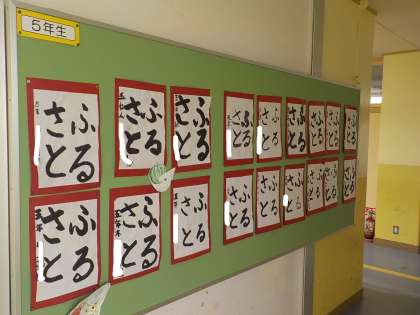 5年生
ふる
さと
ふる
さと
ふる
さと
ふる
さと
ふる
さと
ふる
さと
ふる
さと
ふる
さと
ふる
さと
ふる
さと
ふる
さと
ふる
さと
ふる
さと
ふる
さと
ふる
さと
ふる
さと
ふる
さと
ふる
さと